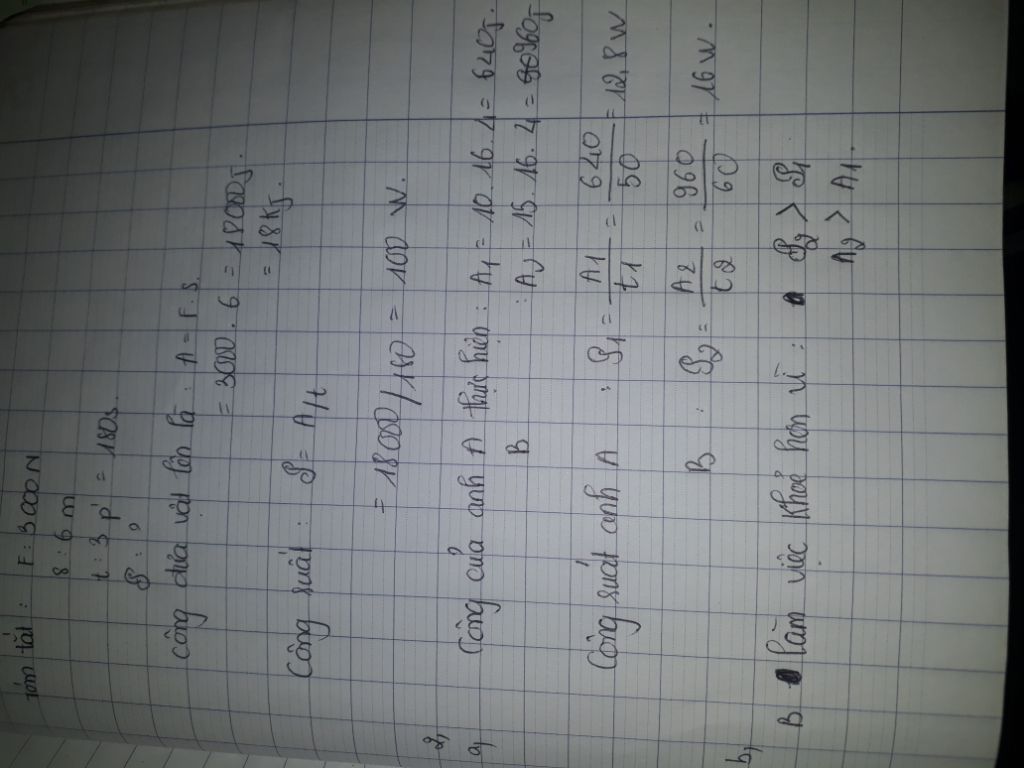 Tóm tắt :
F : 3000N
S : 6m
t : 3p' = 180s.
P : ?
Công đưa vật lên là : A = F . s
= 3000 . 6 = 18000J.
= 18KJ.
Công suất : P = A/t
= 18000/180 = 100 W.
2,
a, Công của anh A thực hiện : A1 = 10 . 16 . 4 = 640J.
B : A2 = 15 . 16 . 4 = 960J
Công suất anh A : P1 = A1/t1 = 640/50 = 12,8W
B : P2 = A2/t2 = 960/60 = 16W.
b,
B làm việc khoẻ hơn vì : P2 > P1
A2 > A1.